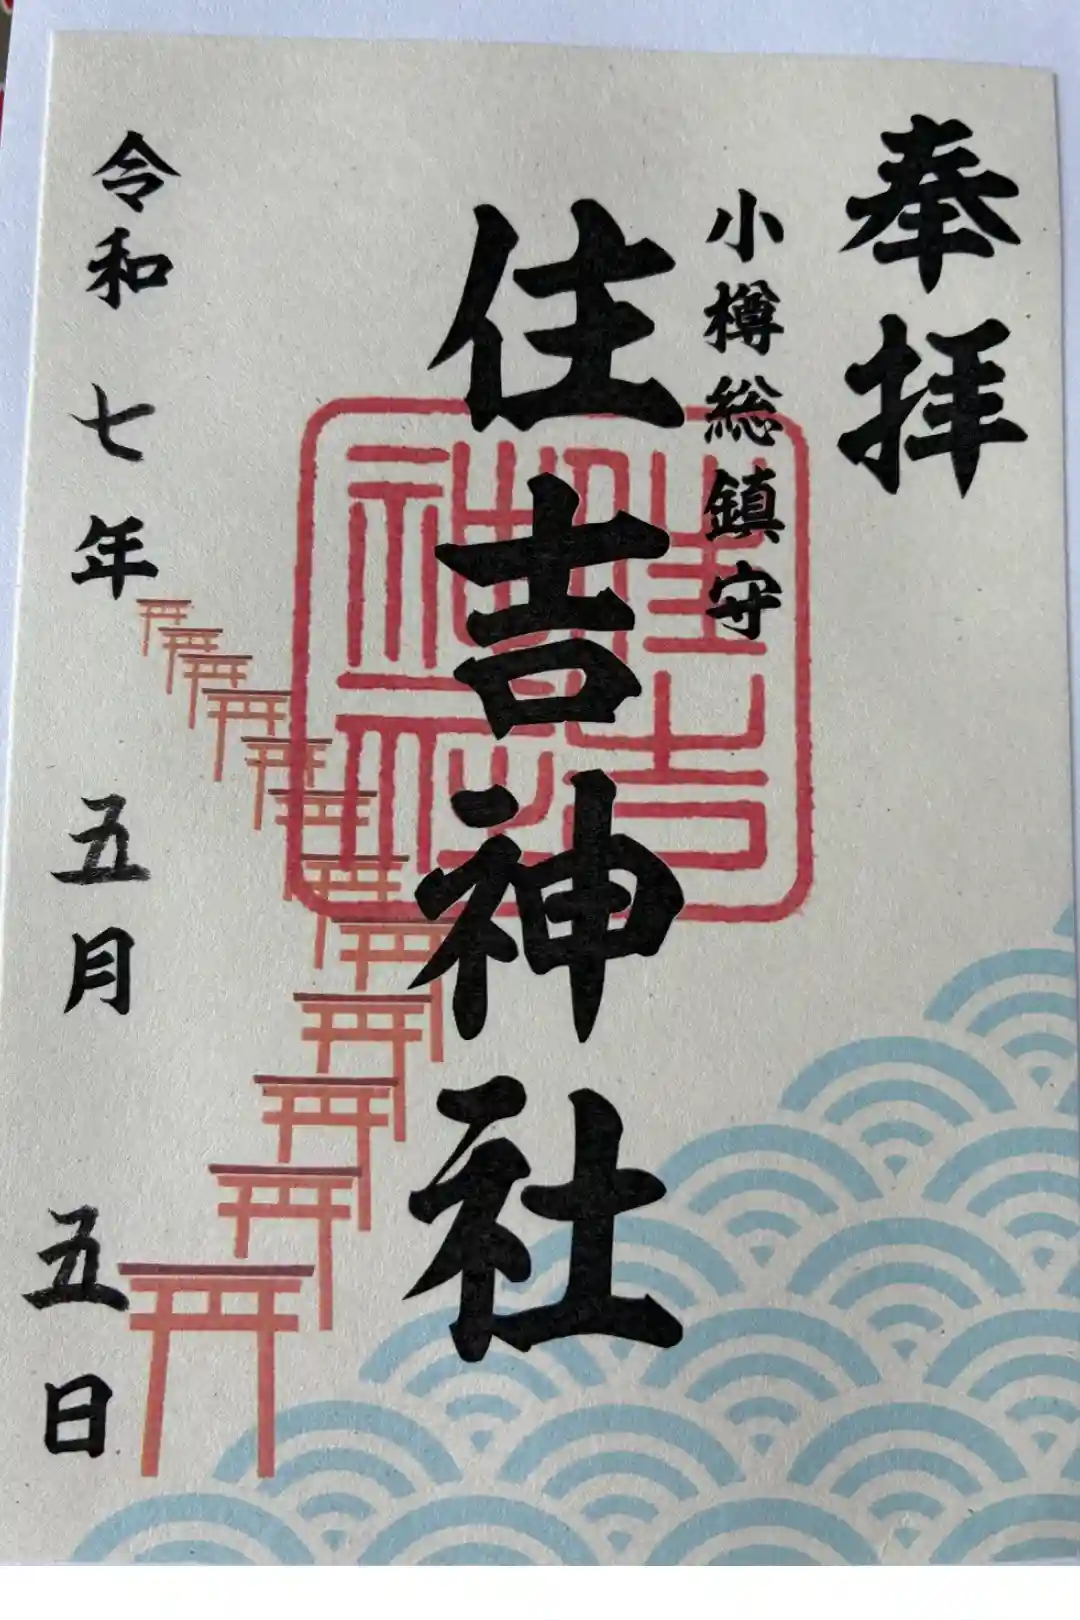 奉拝
小樽総鎮守
住吉神社
住吉神社
令和七年五月五日